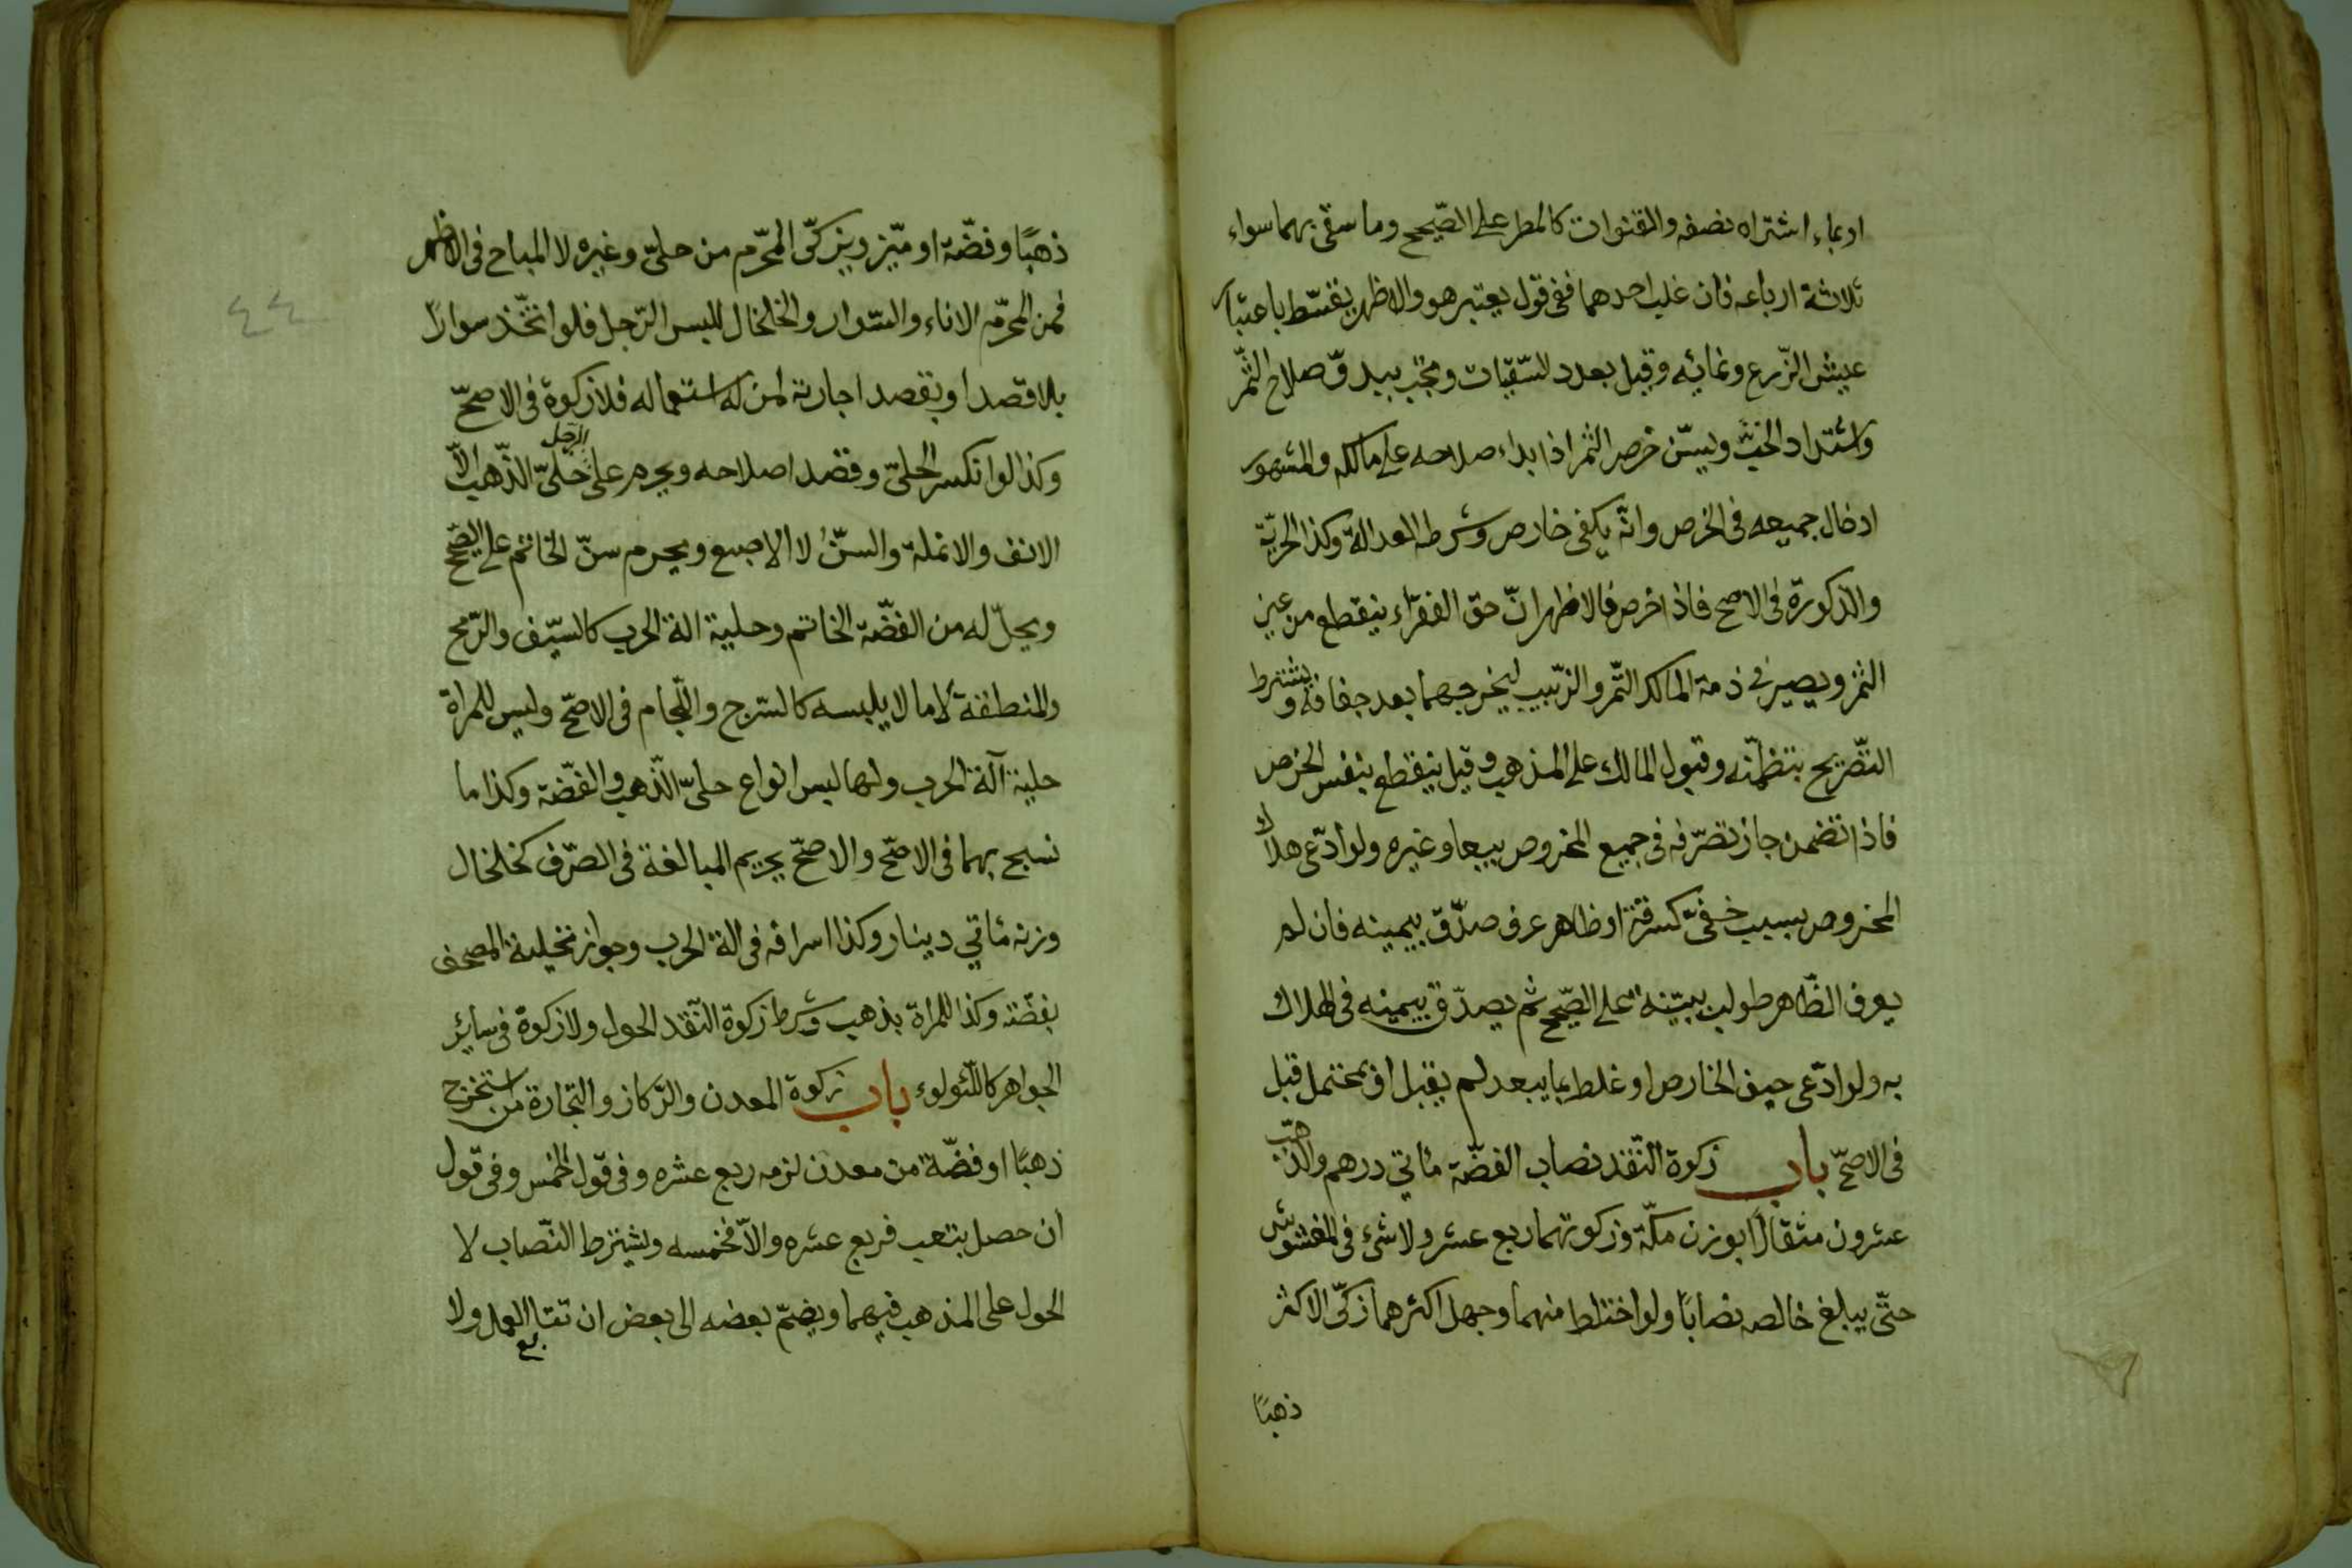 او بماء اشتراه نصفه والقنوات كالمطر على الصّحيح وما سقى بهما سواء
ثلاثة ارباعه فان غلب احدهما ففى قول يعتبر هو والاظهر يقسّط باعتبار
عيش الزّرع ونمائه وقيل بعدد السّقيات ويجب ببدوّ صلاح الثّمر
واشتداد الحبّ ويسنّ خرص الثمر اذا بداء صلاحه على مالكه والمشهور
ادخال جميعه فى الخرص وانّه يكفى خارص وشرطه العدالة وكذا الحريّة
والذكورة فى الاصح فاذا خرص فالاظهر انّ حق الفقراء ينقطع من عين
الثمر ويصير فى ذمة المالك التّمر والزّبيب ليخرجهما بعد جفافه ويشترط
التّصريح بتظمّنه وقبول المالك على المذهب وقيل ينقطع بنفس الخرص
فاذا تضمن جاز تصرّفه فى جميع المخروص بيعا وغيره ولو ادّعى هلاك
المخروص بسبب خفىّ كسرقة او ظاهر عرف صدّق بيمينه فان لم
يعرف الظّاهر طولب ببيّنة على الصّحيح ثم يصدّق بيمينه فى الهلاك
به ولو ادّعى حيف الخارص او غلطه بما يبعد لم يقبل او بمحتمل قبل
فى الاصحّ باب زكوة النّقد نصاب الفضّة مأتي درهم والذّهب
عشرون مثقالًا بوزن مكّة وزكوتهما ربع عشر ولا شىء فى المغشوش
حتّى يبلغ خالصه نصابًا ولو اختلط منهما وجهل اكثرهما زكّى الاكثر
ذهبًا
٤٤
ذهبًا وفضّة او ميّز ويزكّى المحرّم من حلىّ وغيره لا المباح فى الاظهر
فمن المحرّم الاناء والسّوار والخلخال للبس الرّجل فلو اتّخذ سوارًا
بلا قصد او بقصد اجارته لمن له استعماله فلا زكوة فى الاصحّ
وكذا لو انكسر الحلىّ وقصد اصلاحه ويحرم على الرجل حلىّ الذّهب الّا
الانف والانملة والسنّ لا الاصبع ويحرم سنّ الخاتم على الصّحيح
ويحلّ له من الفضّة الخاتم وحلية الة الحرب كالسّيف والرّمح
والمنطقة لا ما لا يلبسه كالسّرج واللّجام فى الاصحّ وليس للمراة
حلية آلة الحرب ولها لبس انواع حلىّ الذّهب والفضّة وكذا ما
نسج بهما فى الاصحّ والاصحّ يحريم المبالغة فى الصّرف كخلخال
وزنه مأتي دينار وكذا اسرافه فى الة الحرب وجواز تحلية المصحف
بفضّة وكذا للمراة بذهب وشرط زكوة النّقد الحول ولا زكوة فى سائر
الجواهر كاللّئولوء باب زكوة المعدن والرّكاز والتّجارة من استخرج
ذهبًا او فضّة من معدن لزمه ربع عشره وفى قول الخمس وفى قول
ان حصل بتعب فربع عشره والّا فخمسه ويشترط النّصاب لا
الحول على المذهب فيهما ويضمّ بعضه الى بعض ان تتابع العمل ولا